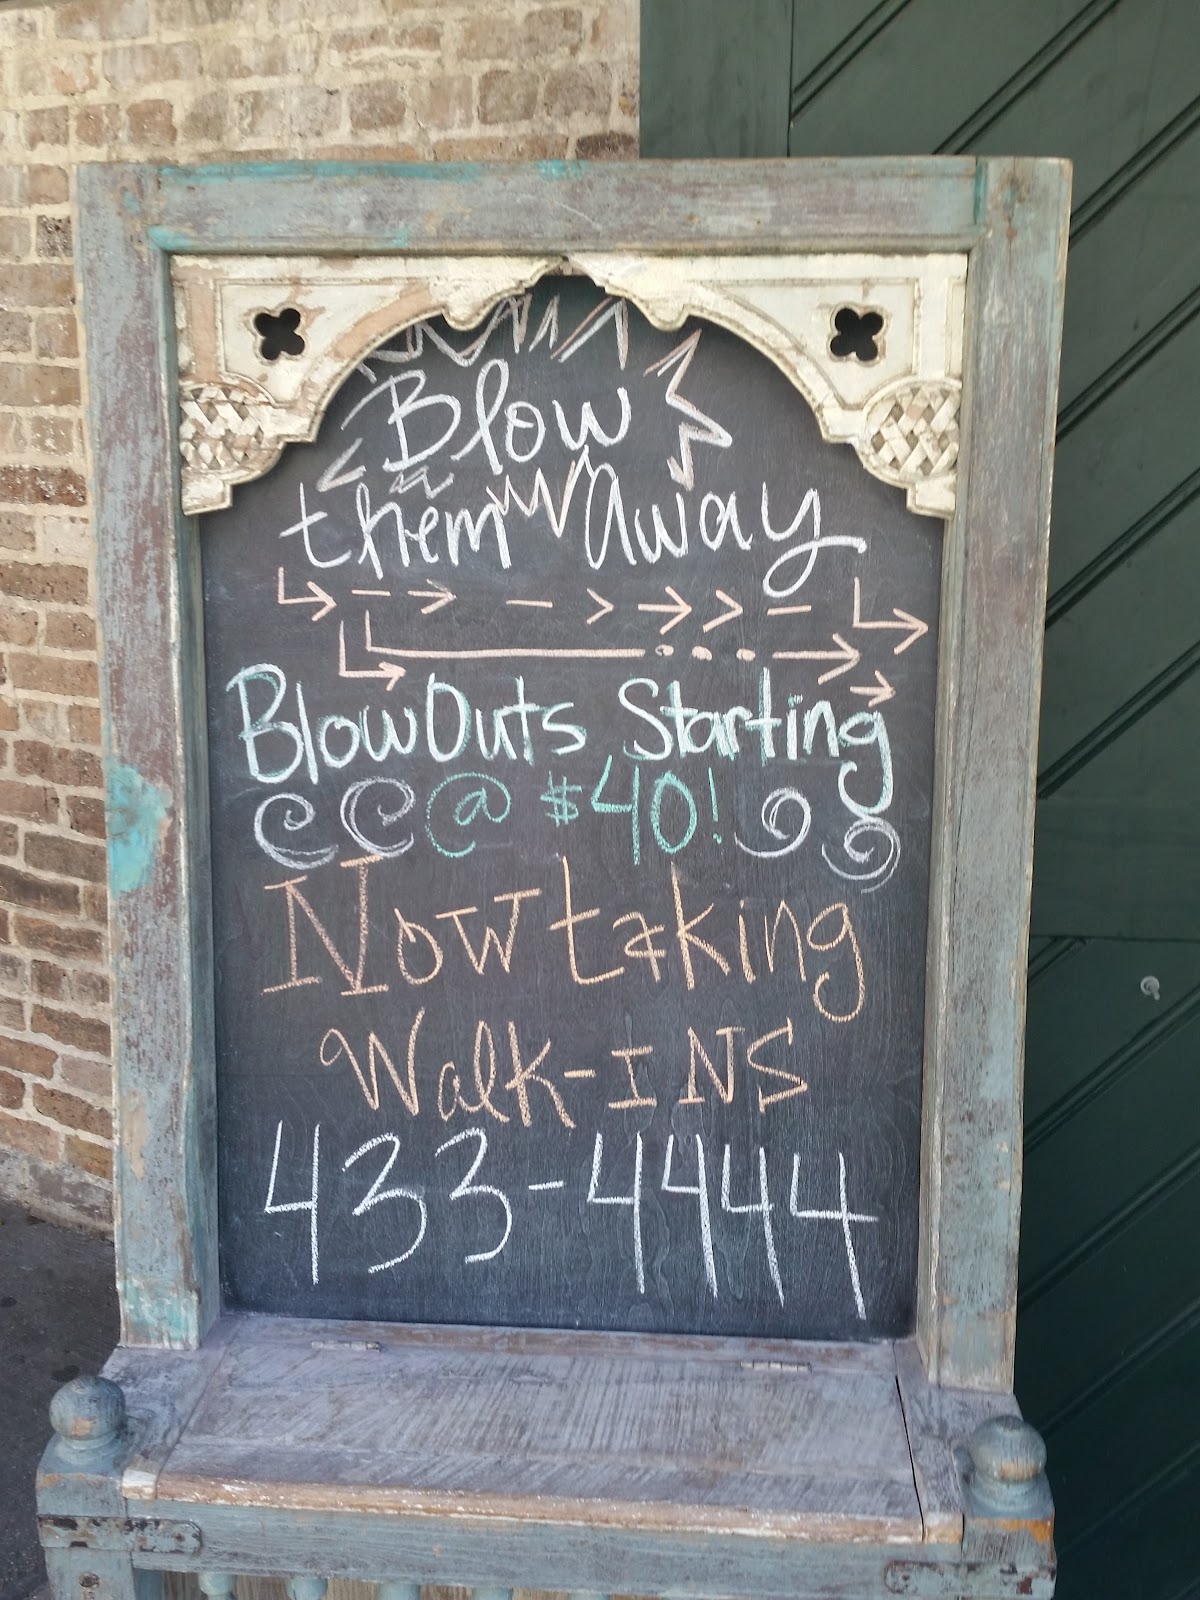 Blow
them away
BlowOuts Starting
@ $40!
Now taking
Walk-INS
433-4444